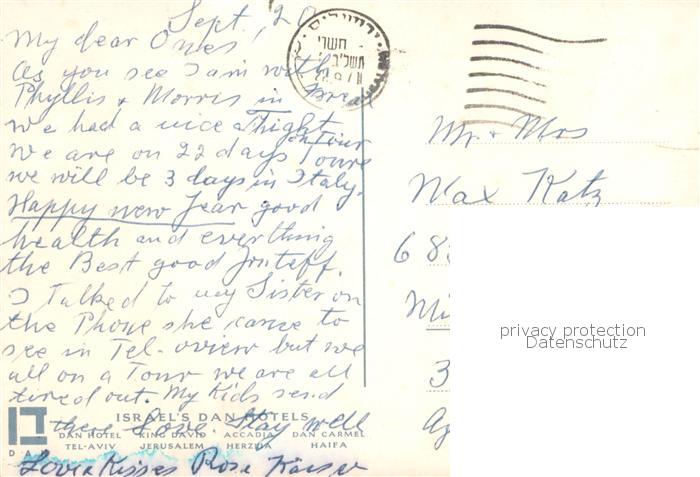 Sept, 20
My dear Ones
As you see I am with
Phyllis + Morris in Isreal
we had a nice a Flight
we are on 22 days on Tour
we will be 3 days in Italy.
Happy new Year good
health and everthing
the Best good
I Talked to my Sister on
the Phone she came to
see in Tel-aview but we
all on a Tour we are all
tired out. My Kids send
there Love. Stay well
Love & Kisses Rose Kaiser
ISRAEL'S DAN HOTELS
DAN HOTEL KING DAVID ACCADIA DAN CARMEL
TEL-AVIV JERUSALEM HERZLIA HAIFA
ירושלים
תשרי
תשל"ב
Mr. + Mrs
Max Katz
68
Mi
3
privacy protection
Datenschutz